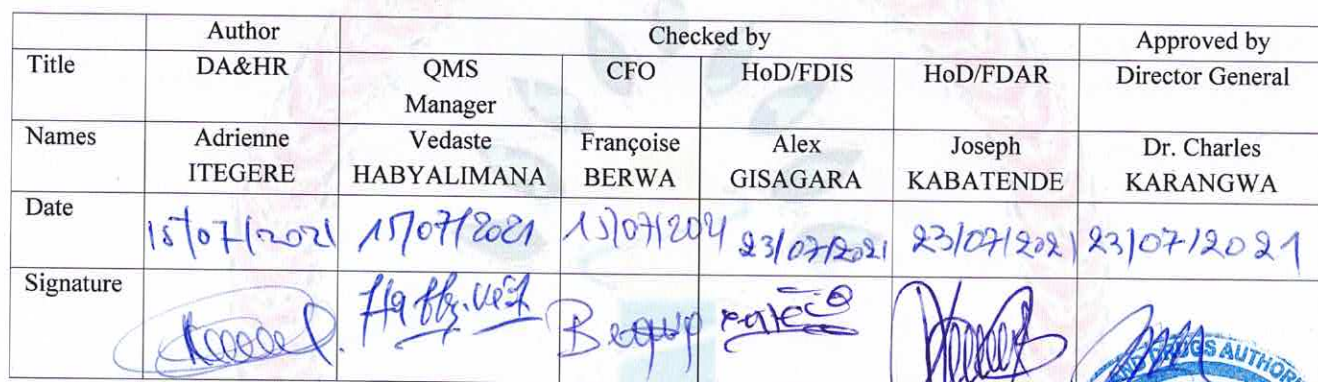 Author Checked by Approved by
Title DA&HR QMS Manager CFO HoD/FDIS HoD/FDAR Director General
Names Adrienne ITEGERE Vedaste HABYALIMANA Françoise BERWA Alex GISAGARA Joseph KABATENDE Dr. Charles KARANGWA
Date 15/07/2021 15/07/2021 15/07/2021 23/07/2021 23/07/2021 23/07/2021
Signature
DRUGS AUTHOR